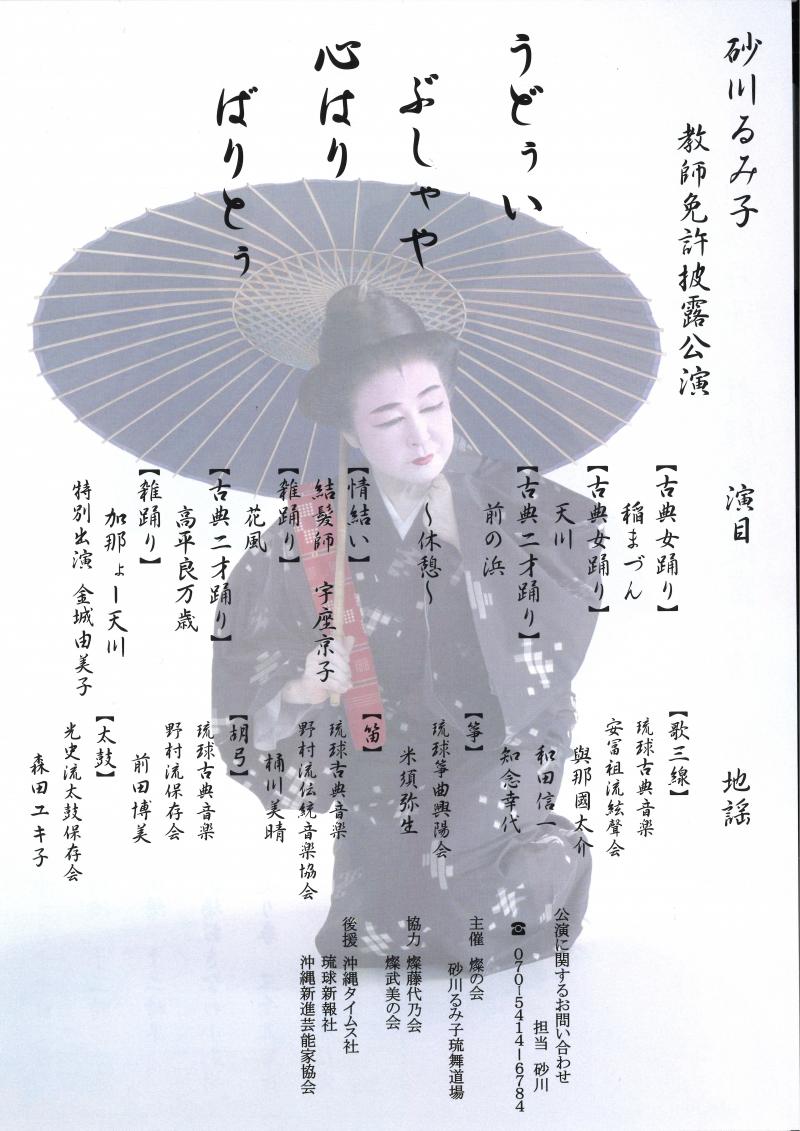 砂川るみ子
教師免許披露公演
うどぅい
ぶしゃや
心はり
ばりとぅ
演目
【古典女踊り】
稲まづん
【古典女踊り】
天川
【古典二才踊り】
前の浜
～休憩～
【情結い】
結髪師 宇座京子
【雑踊り】
花風
【古典二才踊り】
高平良万歳
【雑踊り】
加那ょー天川
特別出演 金城由美子
地謡
【歌三線】
琉球古典音楽
安冨祖流絃聲会
與那國太介
和田信一
知念幸代
【箏】
琉球箏曲興陽会
米須弥生
【笛】
琉球古典音楽
野村流伝統音楽協会
桶川美晴
【胡弓】
琉球古典音楽
野村流保存会
前田博美
【太鼓】
光史流太鼓保存会
森田ユキ子
公演に関するお問い合わせ
担当 砂川
☎ 070-5414-6784
主催 燦の会
砂川るみ子琉舞道場
協力 燦藤代乃会
燦武美の会
後援 沖縄タイムス社
琉球新報社
沖縄新進芸能家協会